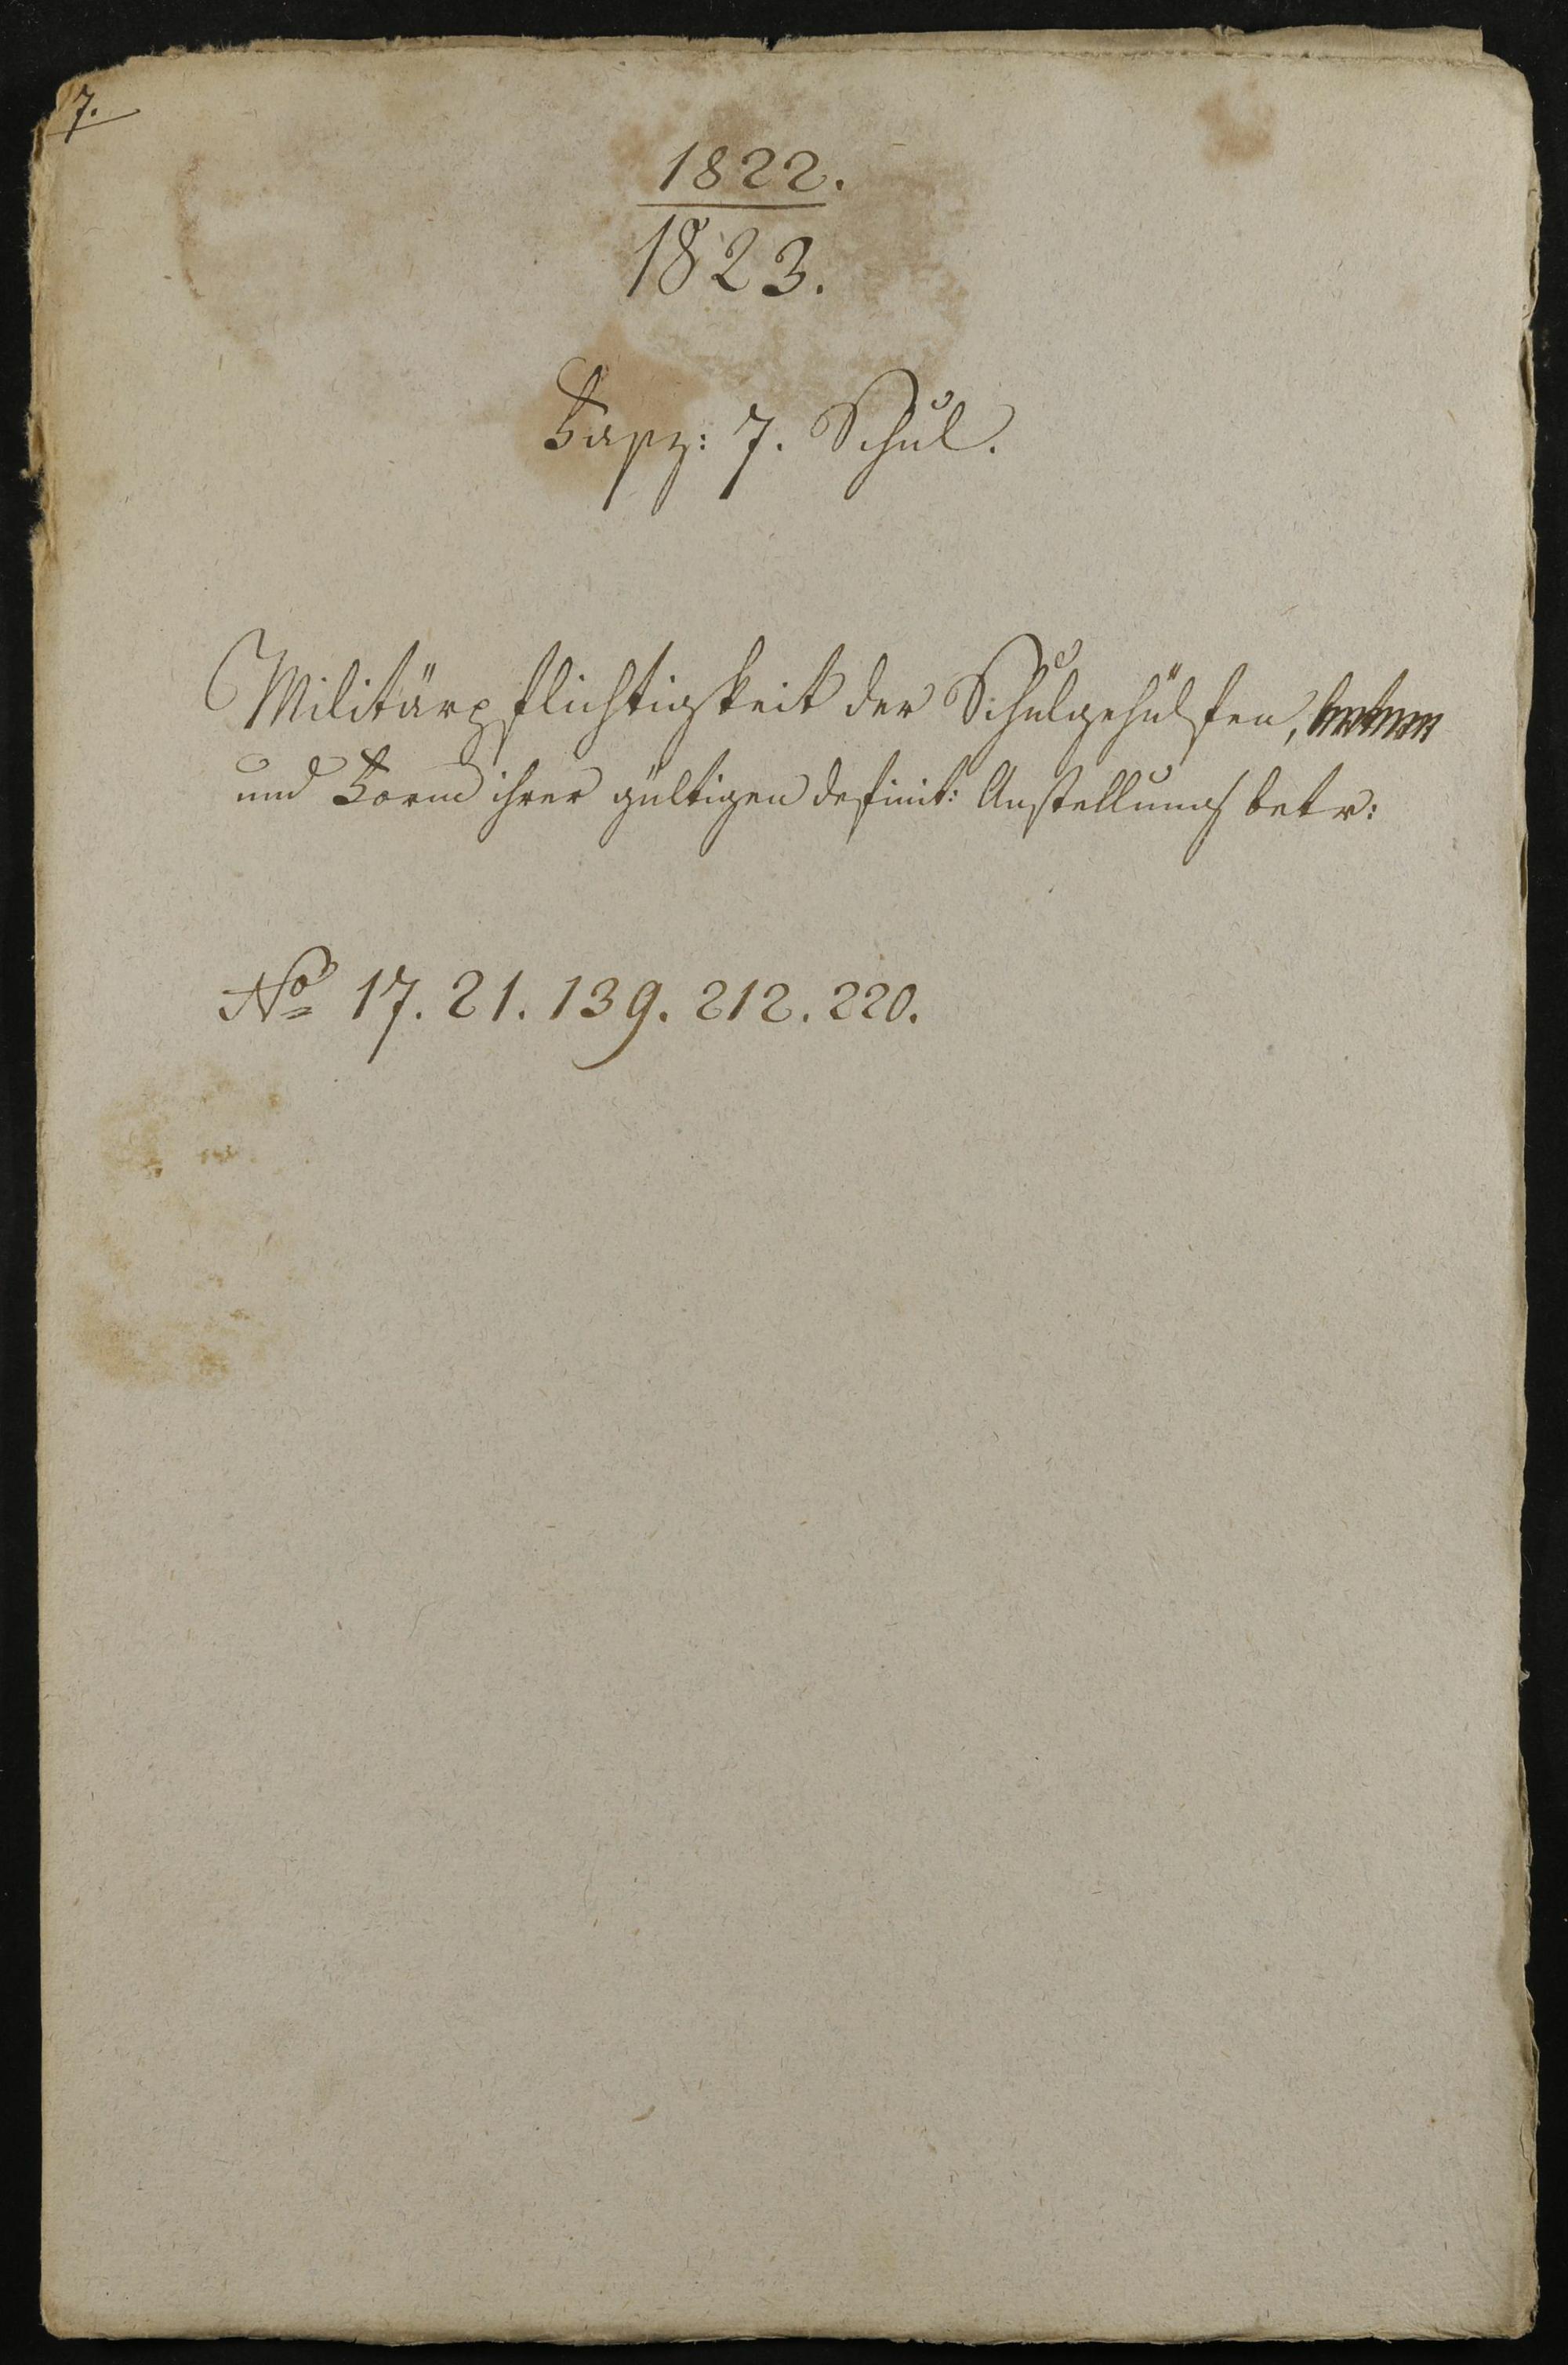 7.
1822.
1823.
Fasz: 7. Schul.
Militärpflichtigkeit der Schulgehülfen,
und Form ihrer gültigen definit: Anstellung betr:
No 17. 21. 139. 212. 220.